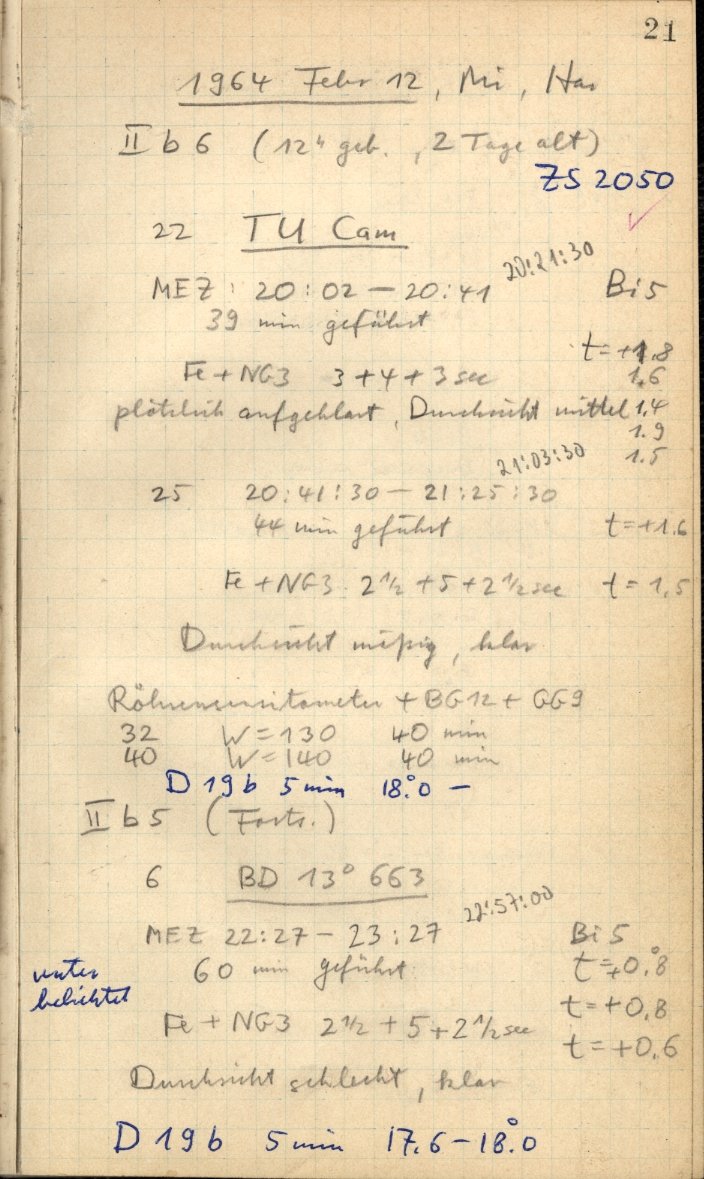 21
1964 Febr 12, Mi, Han
II b 6 (12h geb., 2 Tage alt)
ZS 2050
22 TU Cam
20:21:30
MEZ: 20:02 — 20:41 Bi5
39 min geführt
t=+1.8
Fe+NG3 3+4+3 sec 1.6
plötzlich aufgeklart, Durchsicht mittel 1.4
1.9
21:03:30 1.5
25 20:41:30 — 21:25:30
44 min geführt t=+1.6
Fe+NG3 2 1/2 +5+2 1/2 sec t=1.5
Durchsicht mäßig, klar
Röhrensensitometer + BG12 + GG9
32 W=130 40 min
40 W=140 40 min
D 19b 5 min 18°.0 —
II b 5 (Forts.)
6 BD 13° 663
22:57:00
MEZ 22:27 — 23:27 Bi5
60 min geführt t=+0°.8
unter
belichtet
t=+0.8
Fe + NG3 2 1/2 + 5 + 2 1/2 sec
t=+0.6
Durchsicht schlecht, klar
D 19b 5 min 17.6 — 18°.0